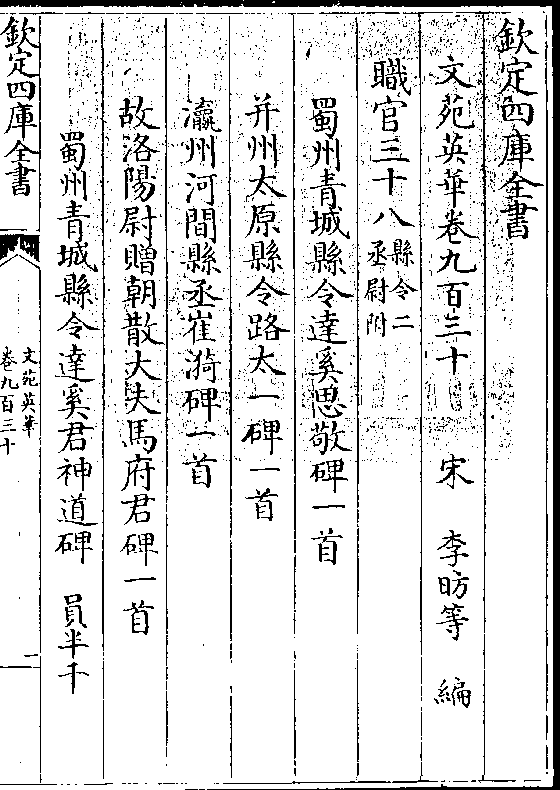 欽定四庫全書
文苑英華卷九百三十　宋　李昉等　編
職官三十八縣令二丞尉附
蜀州青城縣令達奚思敬碑一首
并州太原縣令路太一碑一首
瀛州河間縣丞崔漪碑一首
故洛陽尉贈朝散大夫馬府君碑一首
蜀州青城縣令達奚君神道碑　員半千
欽定四庫全書
文苑英華
卷九百三十
一